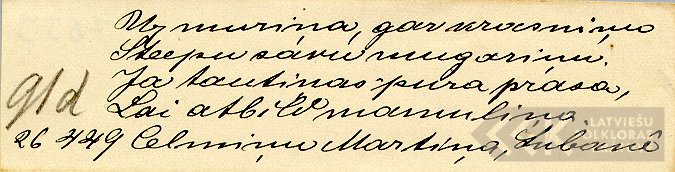 Uz mūriņa, gar krāsniņu
Stiepu sāvu mugariņu.
Ja tautiņas pura prasa,
Lai atbild mamuliņa.
91d
26 449 Celmiņu Martiņa, Lubanē
LATVIEŠU
FOLKLORAS